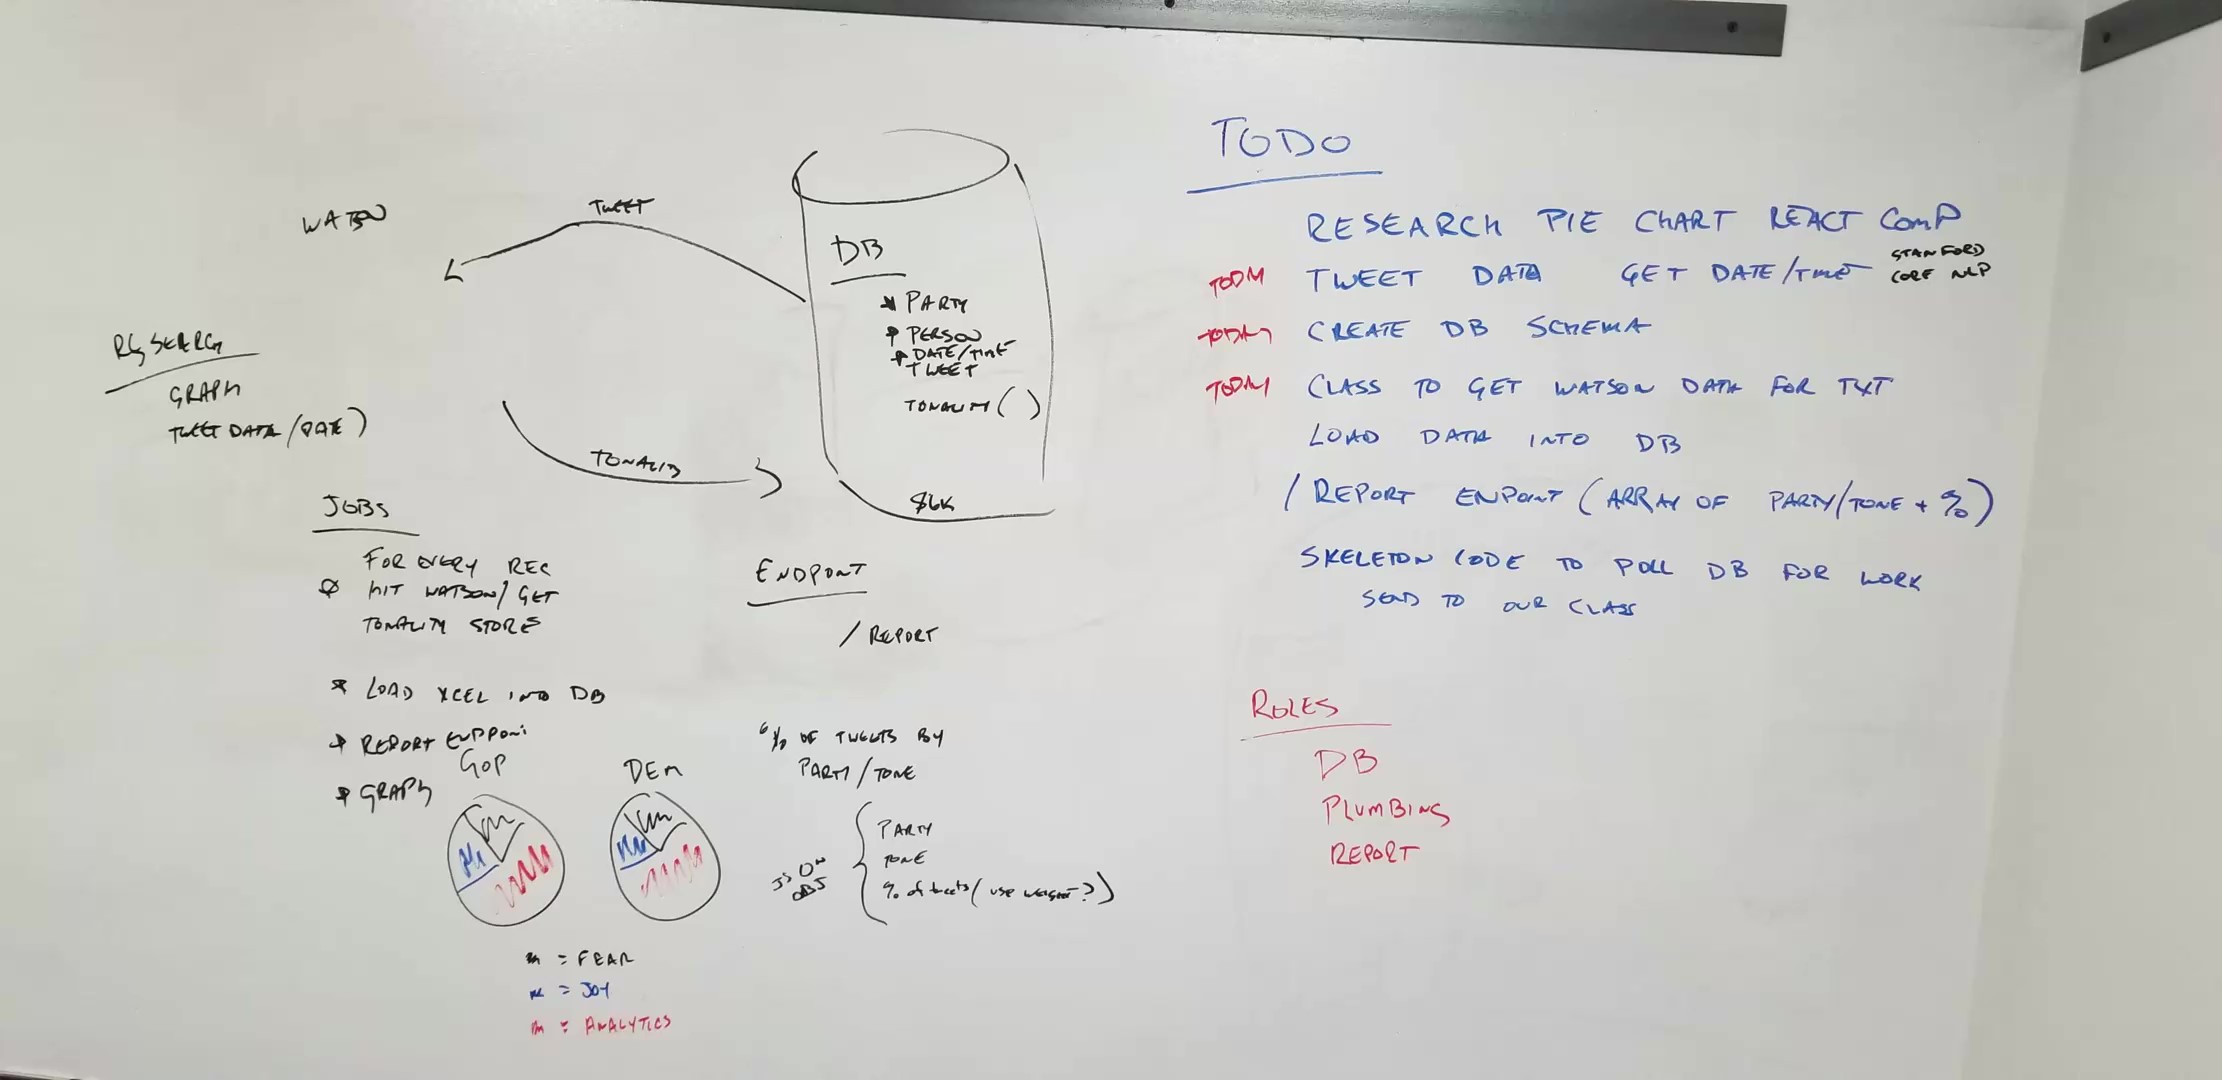 WATSON
TWEET
DB
PARTY
PERSON
DATE/TIME
TWEET
TONALITY ( )
86K
TONALITY
RESEARCH
GRAPH
TWEET DATA/DATE)
JOBS
FOR EVERY REC
HIT WATSON/GET
TONALITY STORE
* LOAD XCEL INTO DB
* REPORT ENDPOINT
* GRAPH
GOP
DEM
= FEAR
= JOY
= ANALYTICS
ENDPOINT
/ REPORT
% OF TWEETS BY
PARTY/TONE
JSON
OBJ
PARTY
TONE
% of tweets (USE WEIGHT?)
TODO
RESEARCH PIE CHART REACT COMP
TWEET DATA GET DATE/TIME STANFORD
CORE NLP
CREATE DB SCHEMA
CLASS TO GET WATSON DATA FOR TXT
LOAD DATA INTO DB
/ REPORT ENPOINT (ARRAY OF PARTY/TONE + %)
SKELETON CODE TO POLL DB FOR WORK
SEND TO OUR CLASS
ROLES
DB
PLUMBING
REPORT